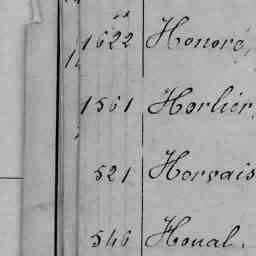 1622 Honoré,
1561 Horlier,
521 Horvais
546 Houal.